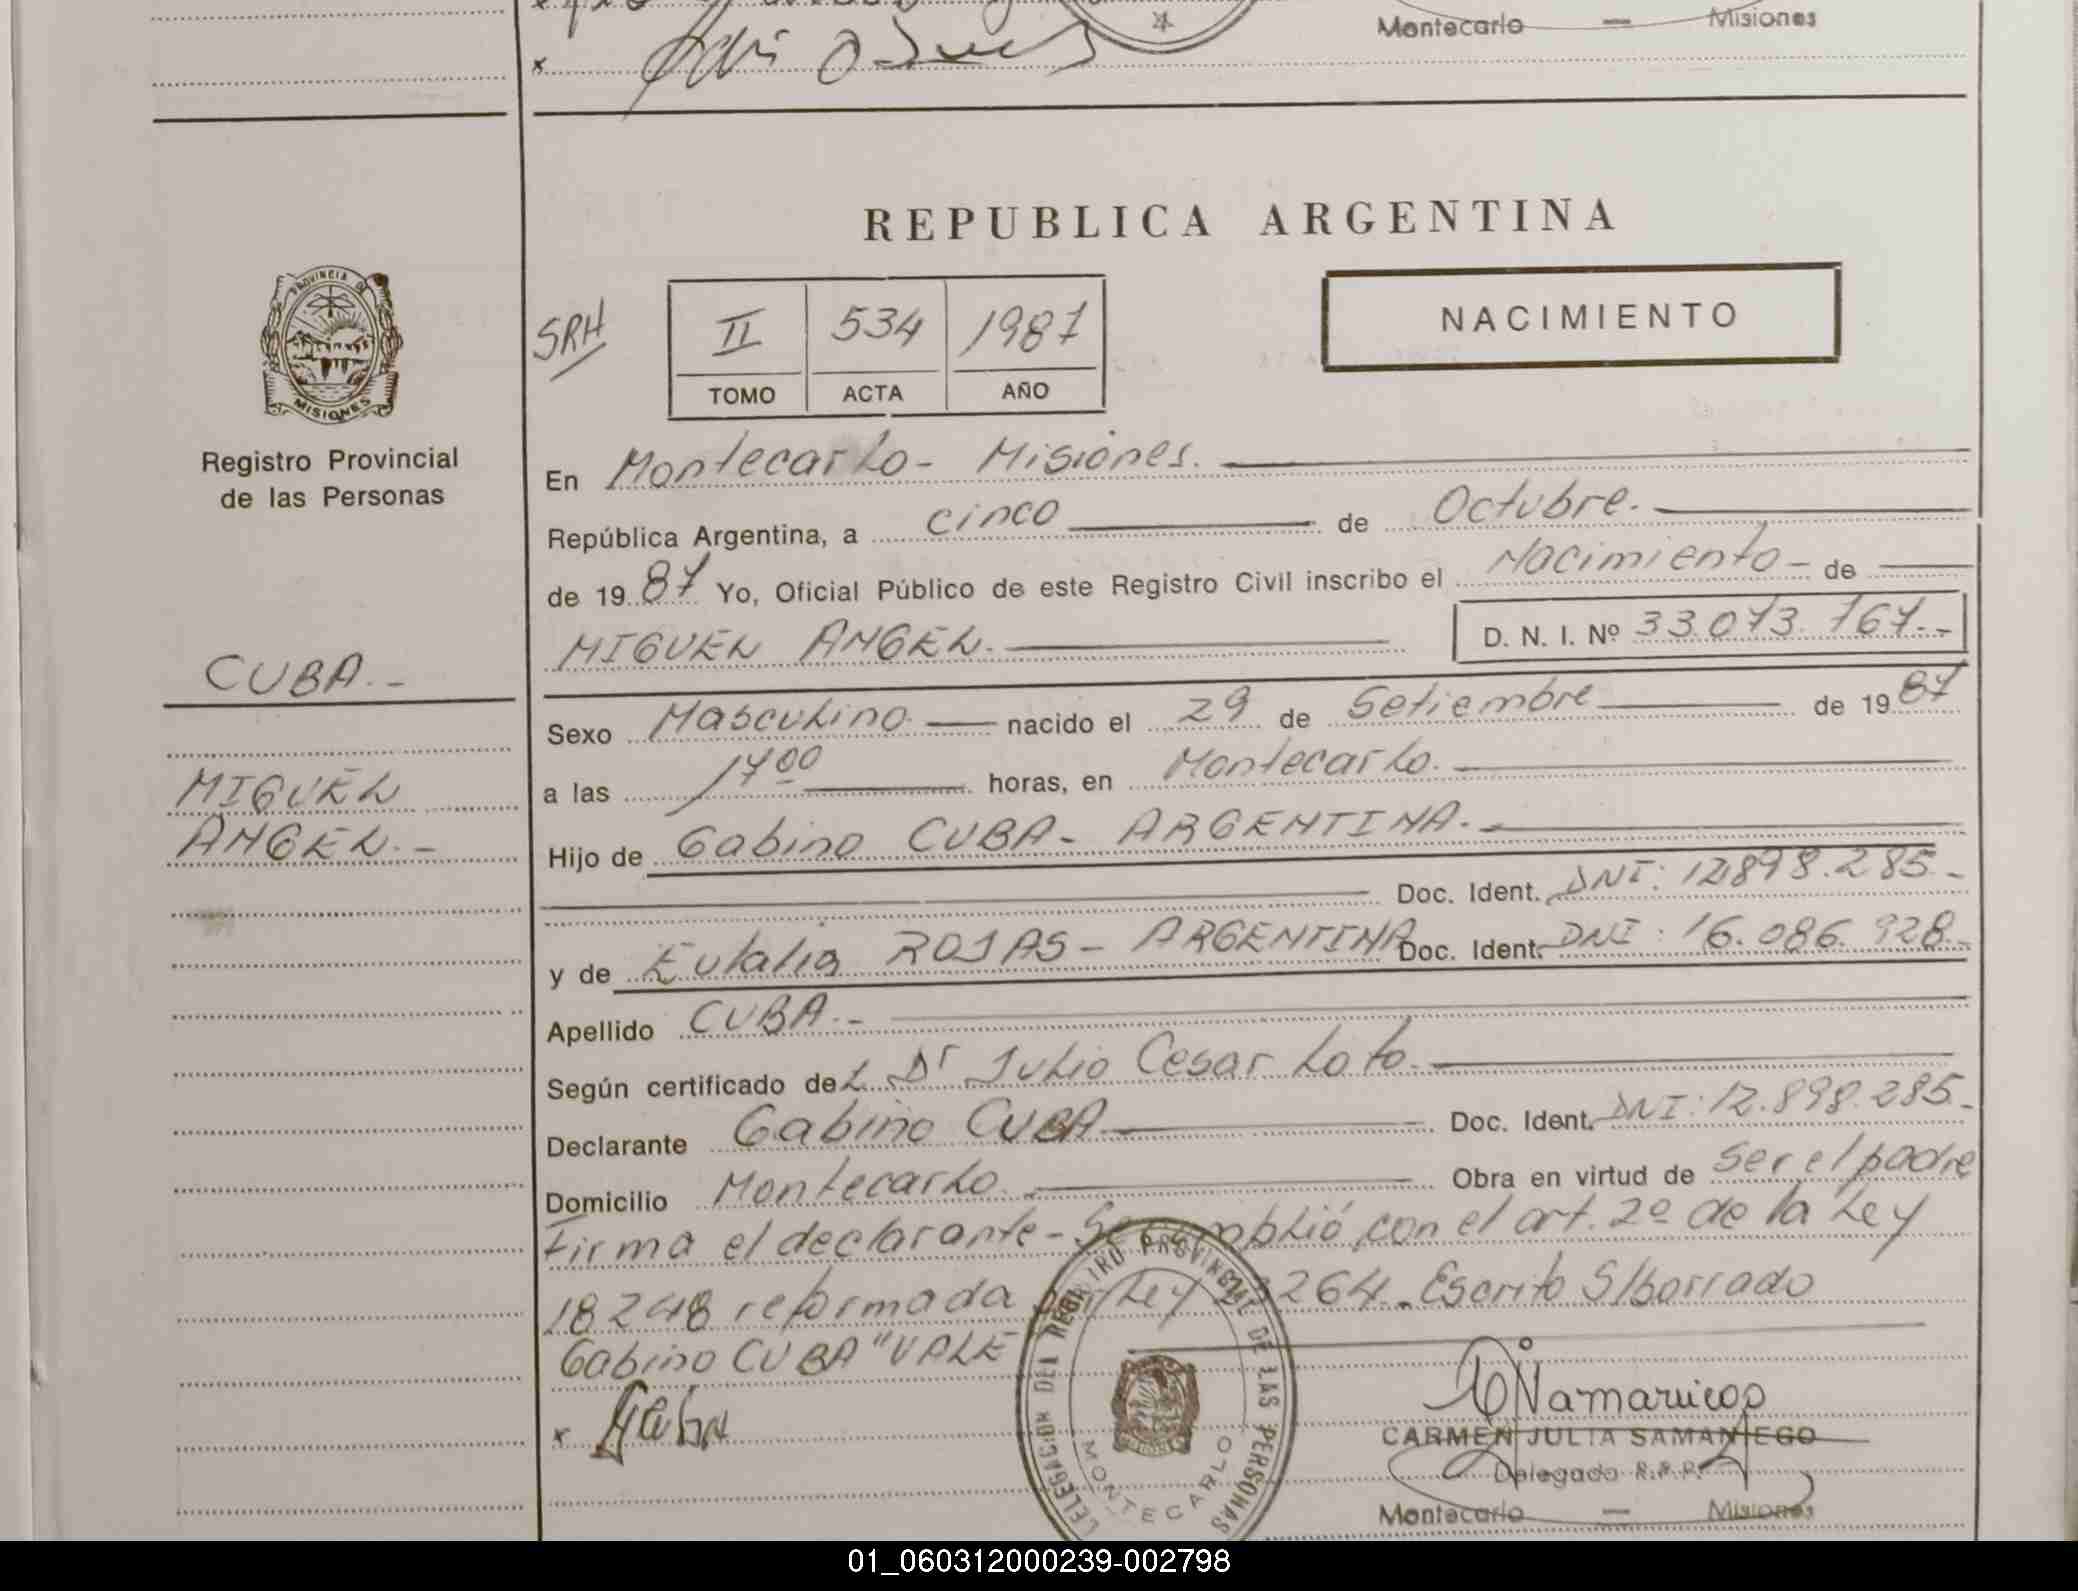 Montecarlo — Misiones
x
REPUBLICA ARGENTINA
PROVINCIA DE
MISIONES
Registro Provincial
de las Personas
SRH
II 534 1987
TOMO ACTA AÑO
NACIMIENTO
En Montecarlo- Misiones.
República Argentina, a cinco de Octubre.
de 1987 Yo, Oficial Público de este Registro Civil inscribo el Nacimiento - de
MIGUEL ANGEL. D. N. I. Nº 33.073.767.-
CUBA.-
MIGUEL
ANGEL.-
Sexo Masculino nacido el 29 de Setiembre de 1987
a las 17 00 horas, en Montecarlo.
Hijo de Gabino CUBA- ARGENTINA.-
Doc. Ident. DNI: 12.898.285.-
y de Eulalia ROJAS- ARGENTINA Doc. Ident. DNI: 16.086.928.-
Apellido CUBA.-
Según certificado del Dr Julio Cesar Loto.
Declarante Gabino CUBA Doc. Ident. DNI: 12.898.285-
Domicilio Montecarlo. Obra en virtud de ser el padre
Firma el declarante- Se cumplió con el art. 2º de la Ley
18248 reformada por Ley 23264. Escrito S/borrado
Gabino CUBA "VALE
x
DELEGACION DEL REGISTRO PROVINCIAL DE LAS PERSONAS
MONTECARLO
CARMEN JULIA SAMANIEGO
Delegada R.P.P.
Montecarlo — Misiones
01_060312000239-002798